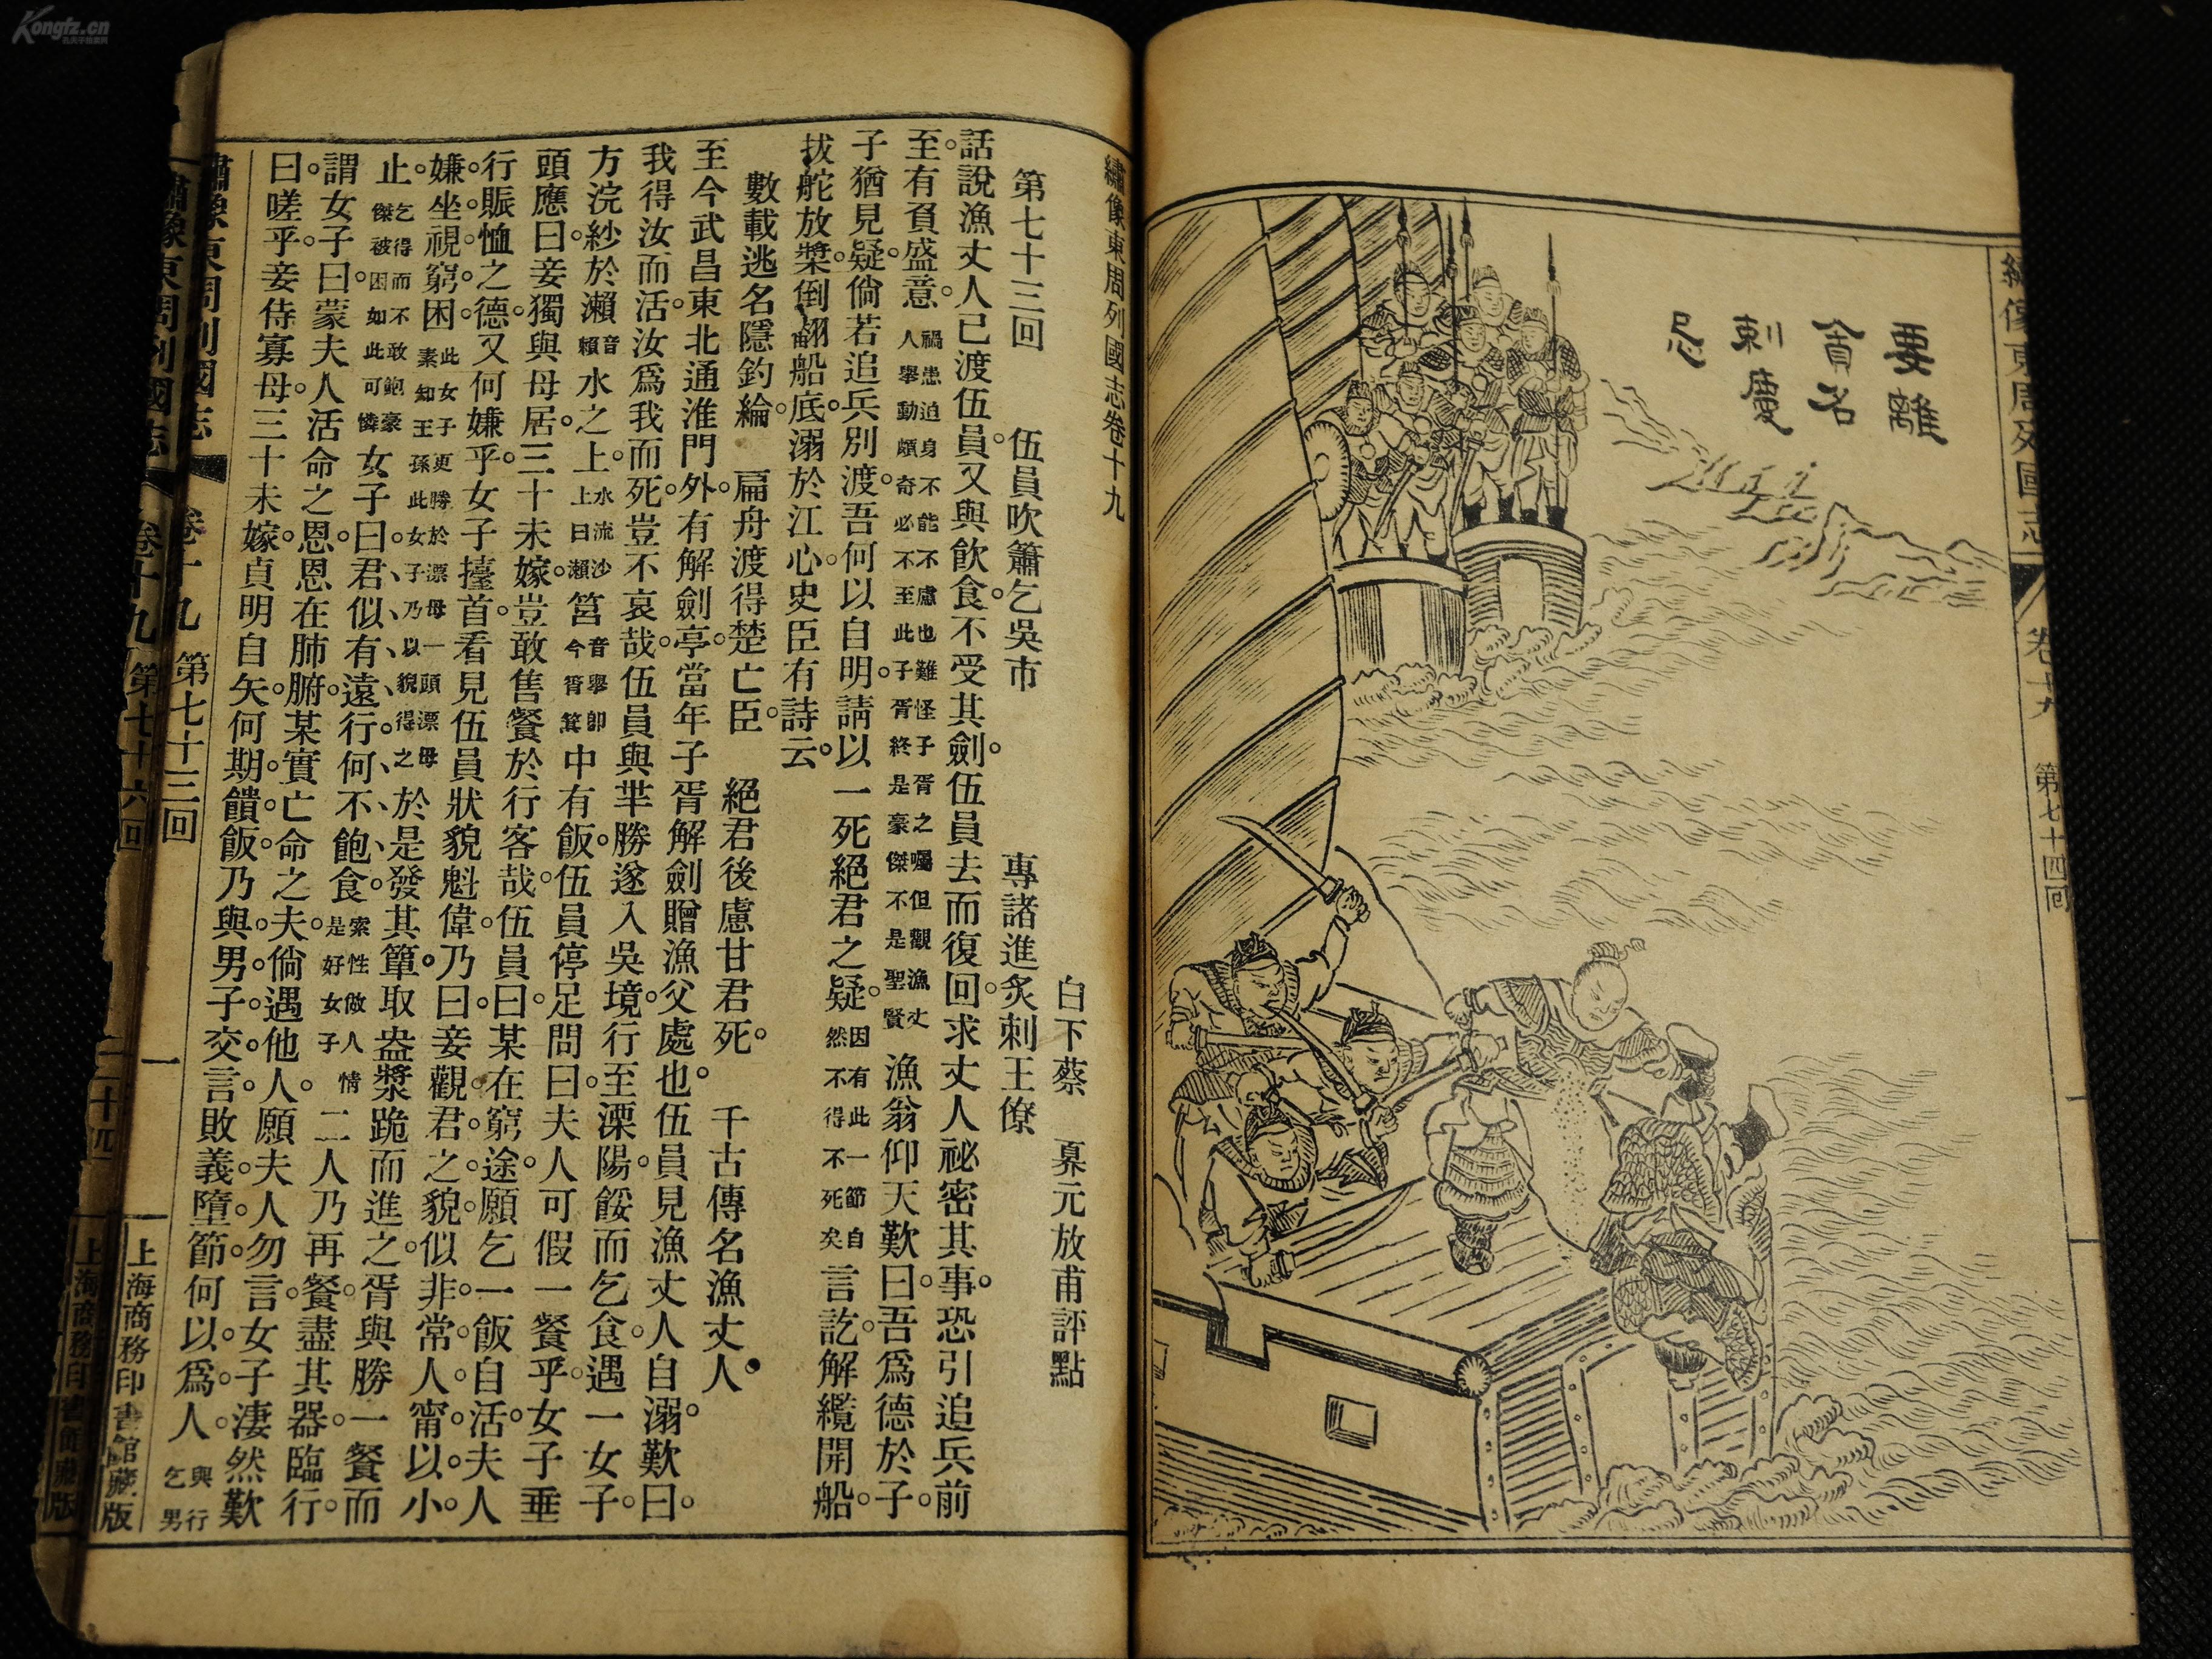 Kongfz.cn
要離
貪名
刺慶
忌
繡像東周列國志 卷十九 第七十四回
繡像東周列國志卷十九
白下蔡 奡元放甫評點
第七十三回 伍員吹簫乞吳市 專諸進炙刺王僚
話說漁丈人已渡伍員。又與飲食。不受其劍。伍員去而復回。求丈人祕密其事。恐引追兵前
至。有負盛意。禍患迫身不能不慮也難怪子胥之囑但觀漁丈人舉動頗奇必不至此子胥終是豪傑不是聖賢漁翁仰天歎曰。吾爲德於子。
子猶見疑。倘若追兵別渡。吾何以自明。請以一死絕君之疑。因有此一節自然不得不死矣言訖。解纜開船。
拔舵放槳。倒翻船底。溺於江心。史臣有詩云。
數載逃名隱釣綸。 扁舟渡得楚亡臣。 絕君後慮甘君死。 千古傳名漁丈人。
至今武昌東北通淮門外。有解劍亭。當年子胥解劍贈漁父處也。伍員見漁丈人自溺。歎曰。
我得汝而活。汝爲我而死。豈不哀哉。伍員與芈勝遂入吳境。行至溧陽。餒而乞食。遇一女子。
方浣紗於瀨音賴水之上。水流沙上曰瀨筥音舉卽今筲箕中有飯。伍員停足問曰。夫人可假一餐乎。女子垂
頭應曰。妾獨與母居。三十未嫁。豈敢售餐於行客哉。伍員曰。某在窮途。願乞一飯自活。夫人
行賑恤之德。又何嫌乎。女子擡首。看見伍員狀貌魁偉。乃曰。妾觀君之貌。似非常人。甯以小
嫌坐視窮困。此女子更勝於漂母一頭漂母素知王孫此女子乃以貌得之於是發其簞。取盎漿。跪而進之。胥與勝一餐而
止。乞得而不敢飽豪傑被困如此可憐女子曰。君似有遠行。何不飽食。索性做人情是好女子二人乃再餐。盡其器。臨行。
謂女子曰。蒙夫人活命之恩。恩在肺腑。某實亡命之夫。倘遇他人。願夫人勿言。女子淒然歎
曰。嗟乎。妾侍寡母。三十未嫁。貞明自矢。何期饋飯。乃與男子交言。敗義墮節。何以爲人。與行乞男
繡像東周列國志 卷十九 第七十三回 一 上海商務印書館藏版
繡像東周列國志 卷十九 第七十六回 二十四 上海商務印書館藏版